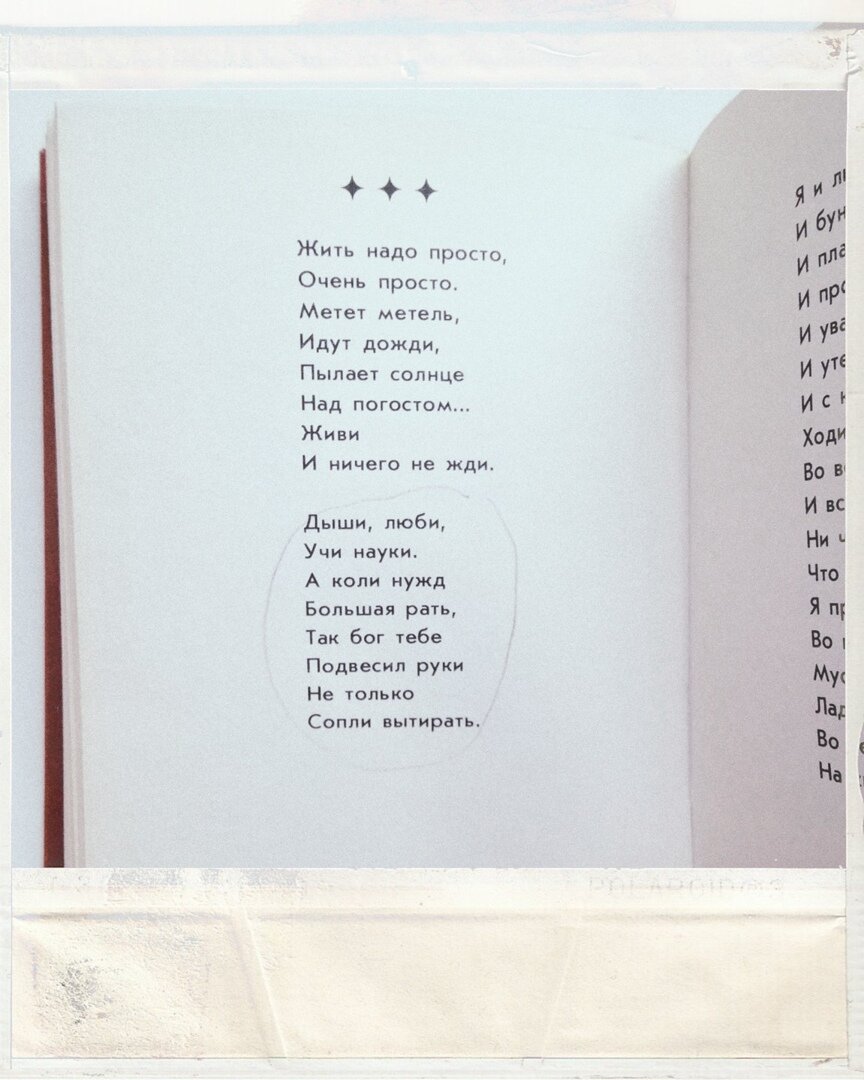 Жить надо просто,
Очень просто.
Метет метель,
Идут дожди,
Пылает солнце
Над погостом...
Живи
И ничего не жди.
Дыши, люби,
Учи науки.
А коли нужд
Большая рать,
Так бог тебе
Подвесил руки
Не только
Сопли вытирать.
Я и
И
И
И
И
И
И с
Во
И
Ни
Что
Я
Во
Во
На